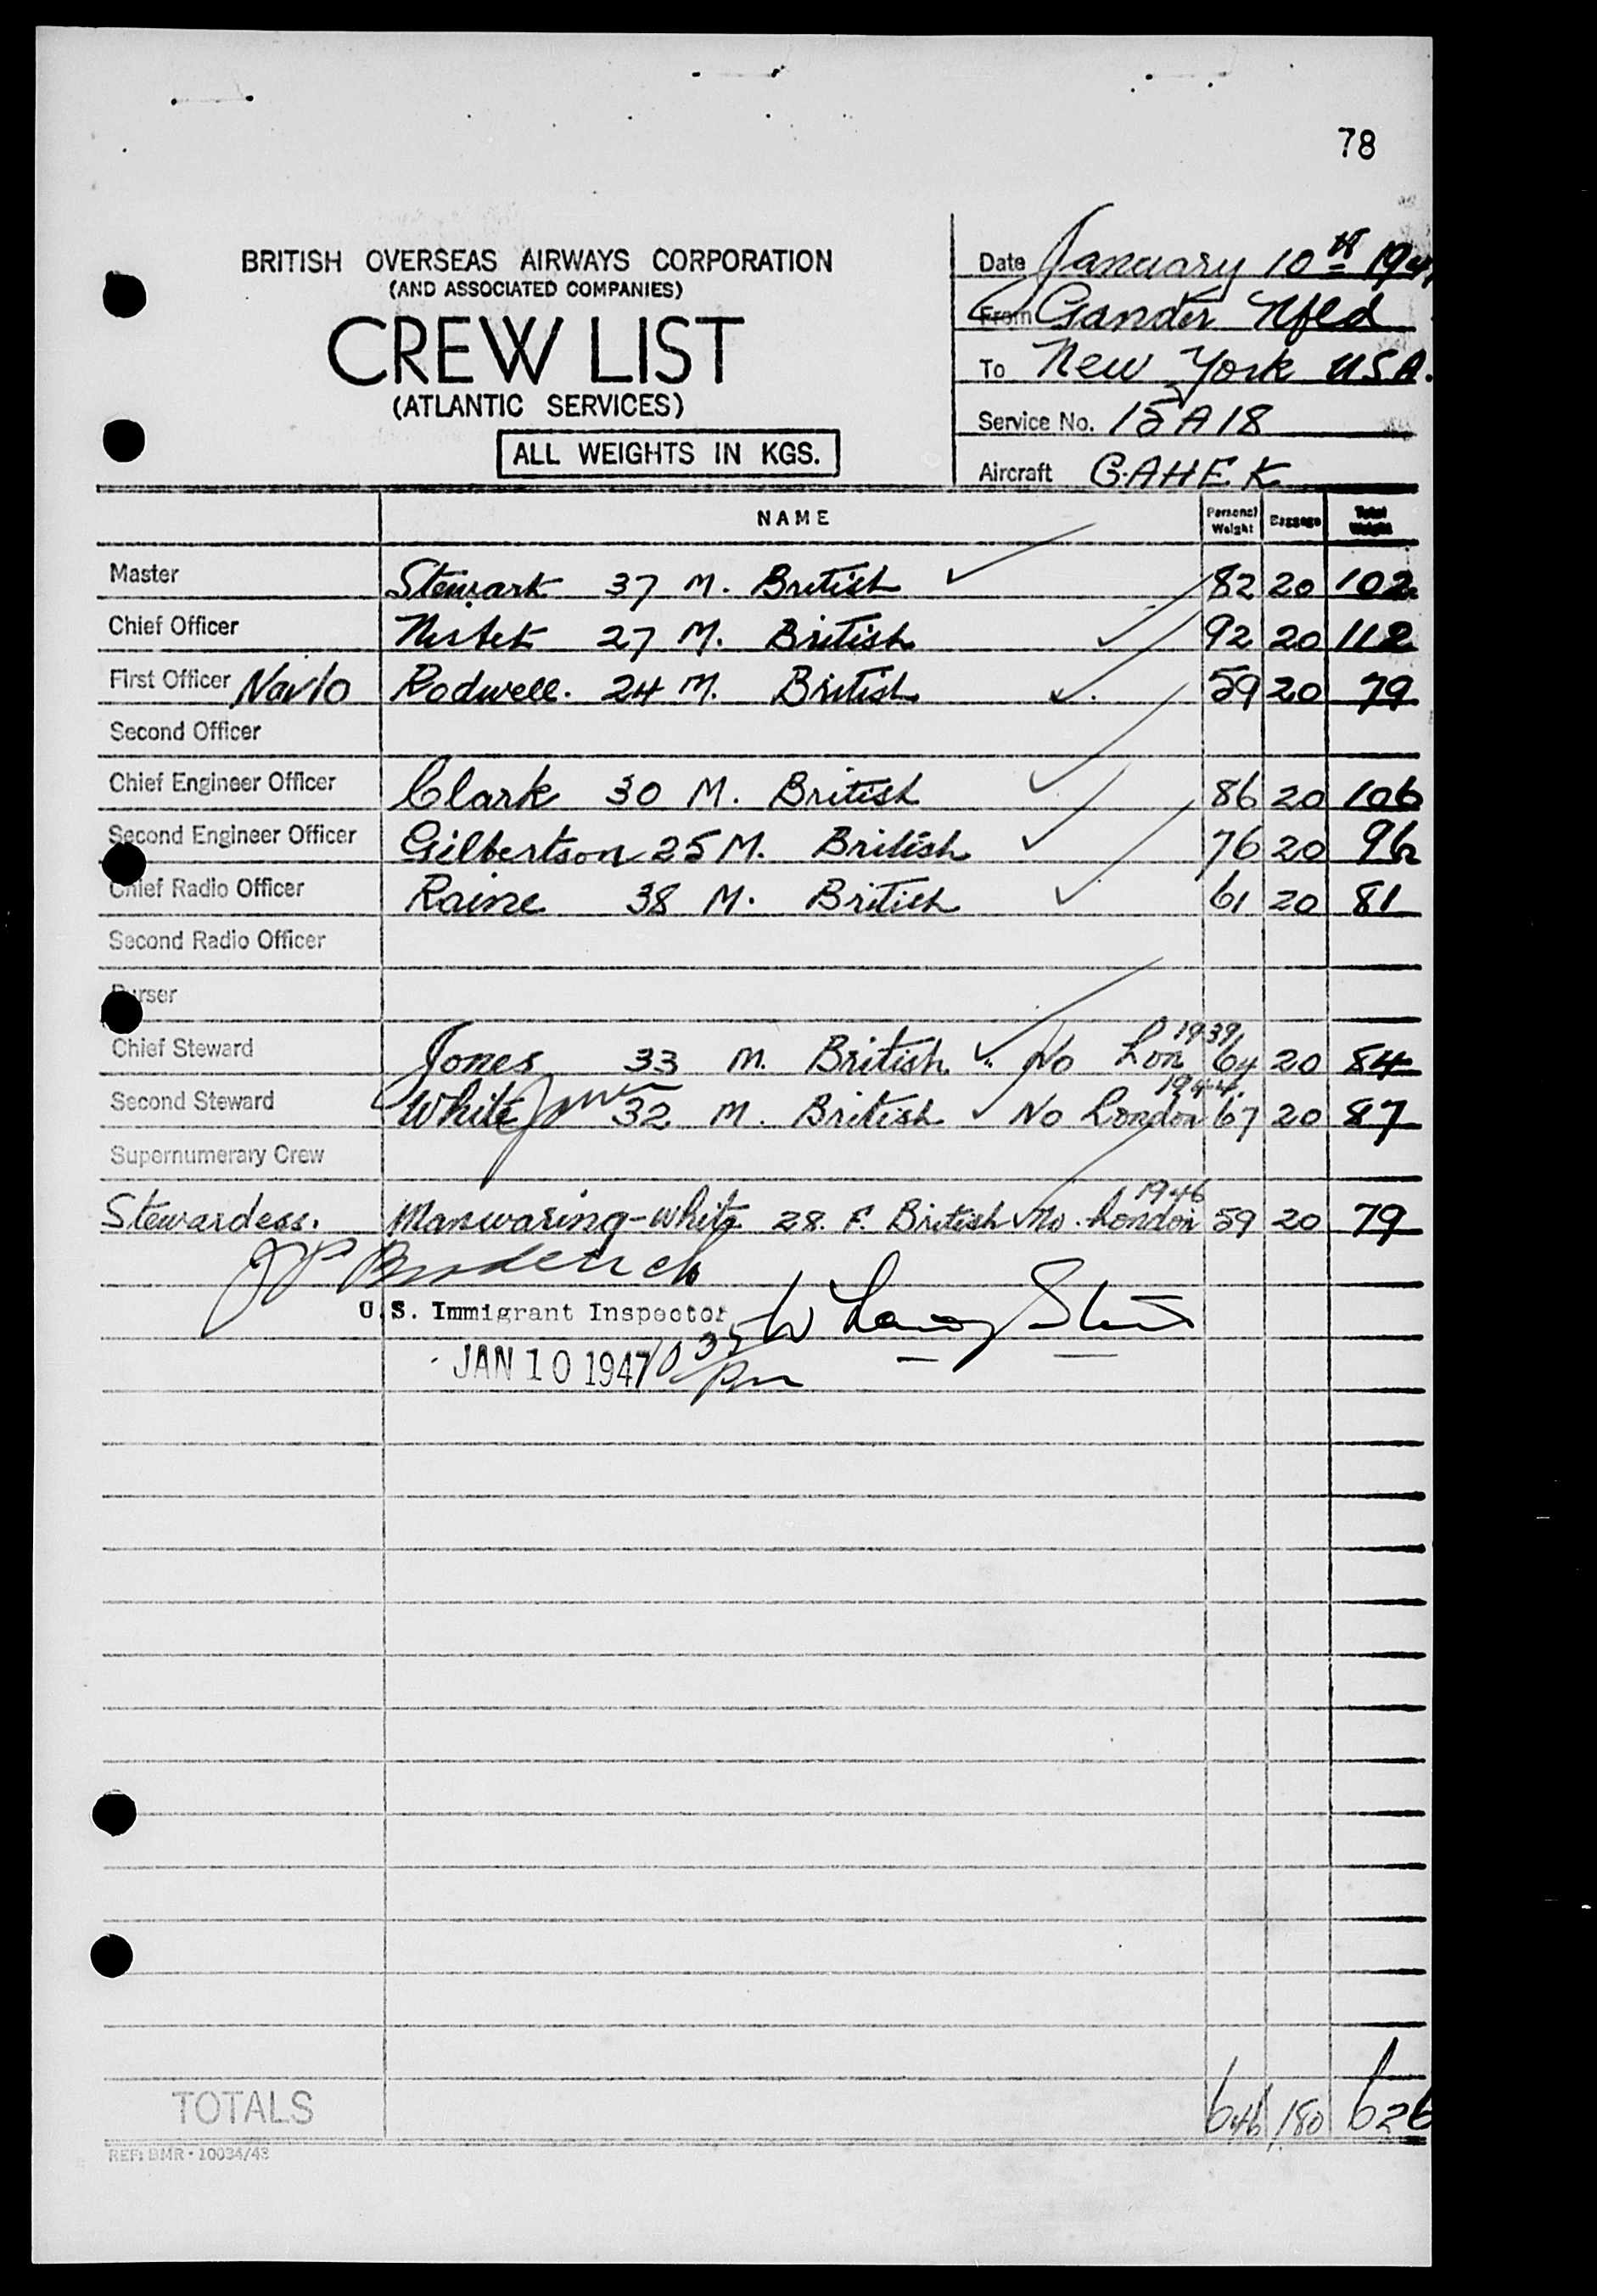 78
BRITISH OVERSEAS AIRWAYS CORPORATION
(AND ASSOCIATED COMPANIES)
CREW LIST
(ATLANTIC SERVICES)
ALL WEIGHTS IN KGS.
Date January 10th 194
From Gander Nfld
To New York USA.
Service No. 15A18
Aircraft G.AHEK
NAME Personal Weight Baggage Total Weight
Master Stewart 37 M. British 82 20 102
Chief Officer Nisbet 27 M. British 92 20 112
First Officer Nav/o Rodwell. 24 M. British 59 20 79
Second Officer
Chief Engineer Officer Clark 30 M. British 86 20 106
Second Engineer Officer Gilbertson 25 M. British 76 20 96
Chief Radio Officer Raine 38 M. British 61 20 81
Second Radio Officer
Purser
Chief Steward Jones 33 M. British No Lon 1939 64 20 84
Second Steward White 32 M. British No London 1944 67 20 87
Supernumerary Crew
Stewardess. Manwaring-White 28. F. British No. London 1946 59 20 79
U.S. Immigrant Inspector
JAN 10 1947 10 35 Pm
TOTALS 646 180 626
REF: BMR · 10034/43